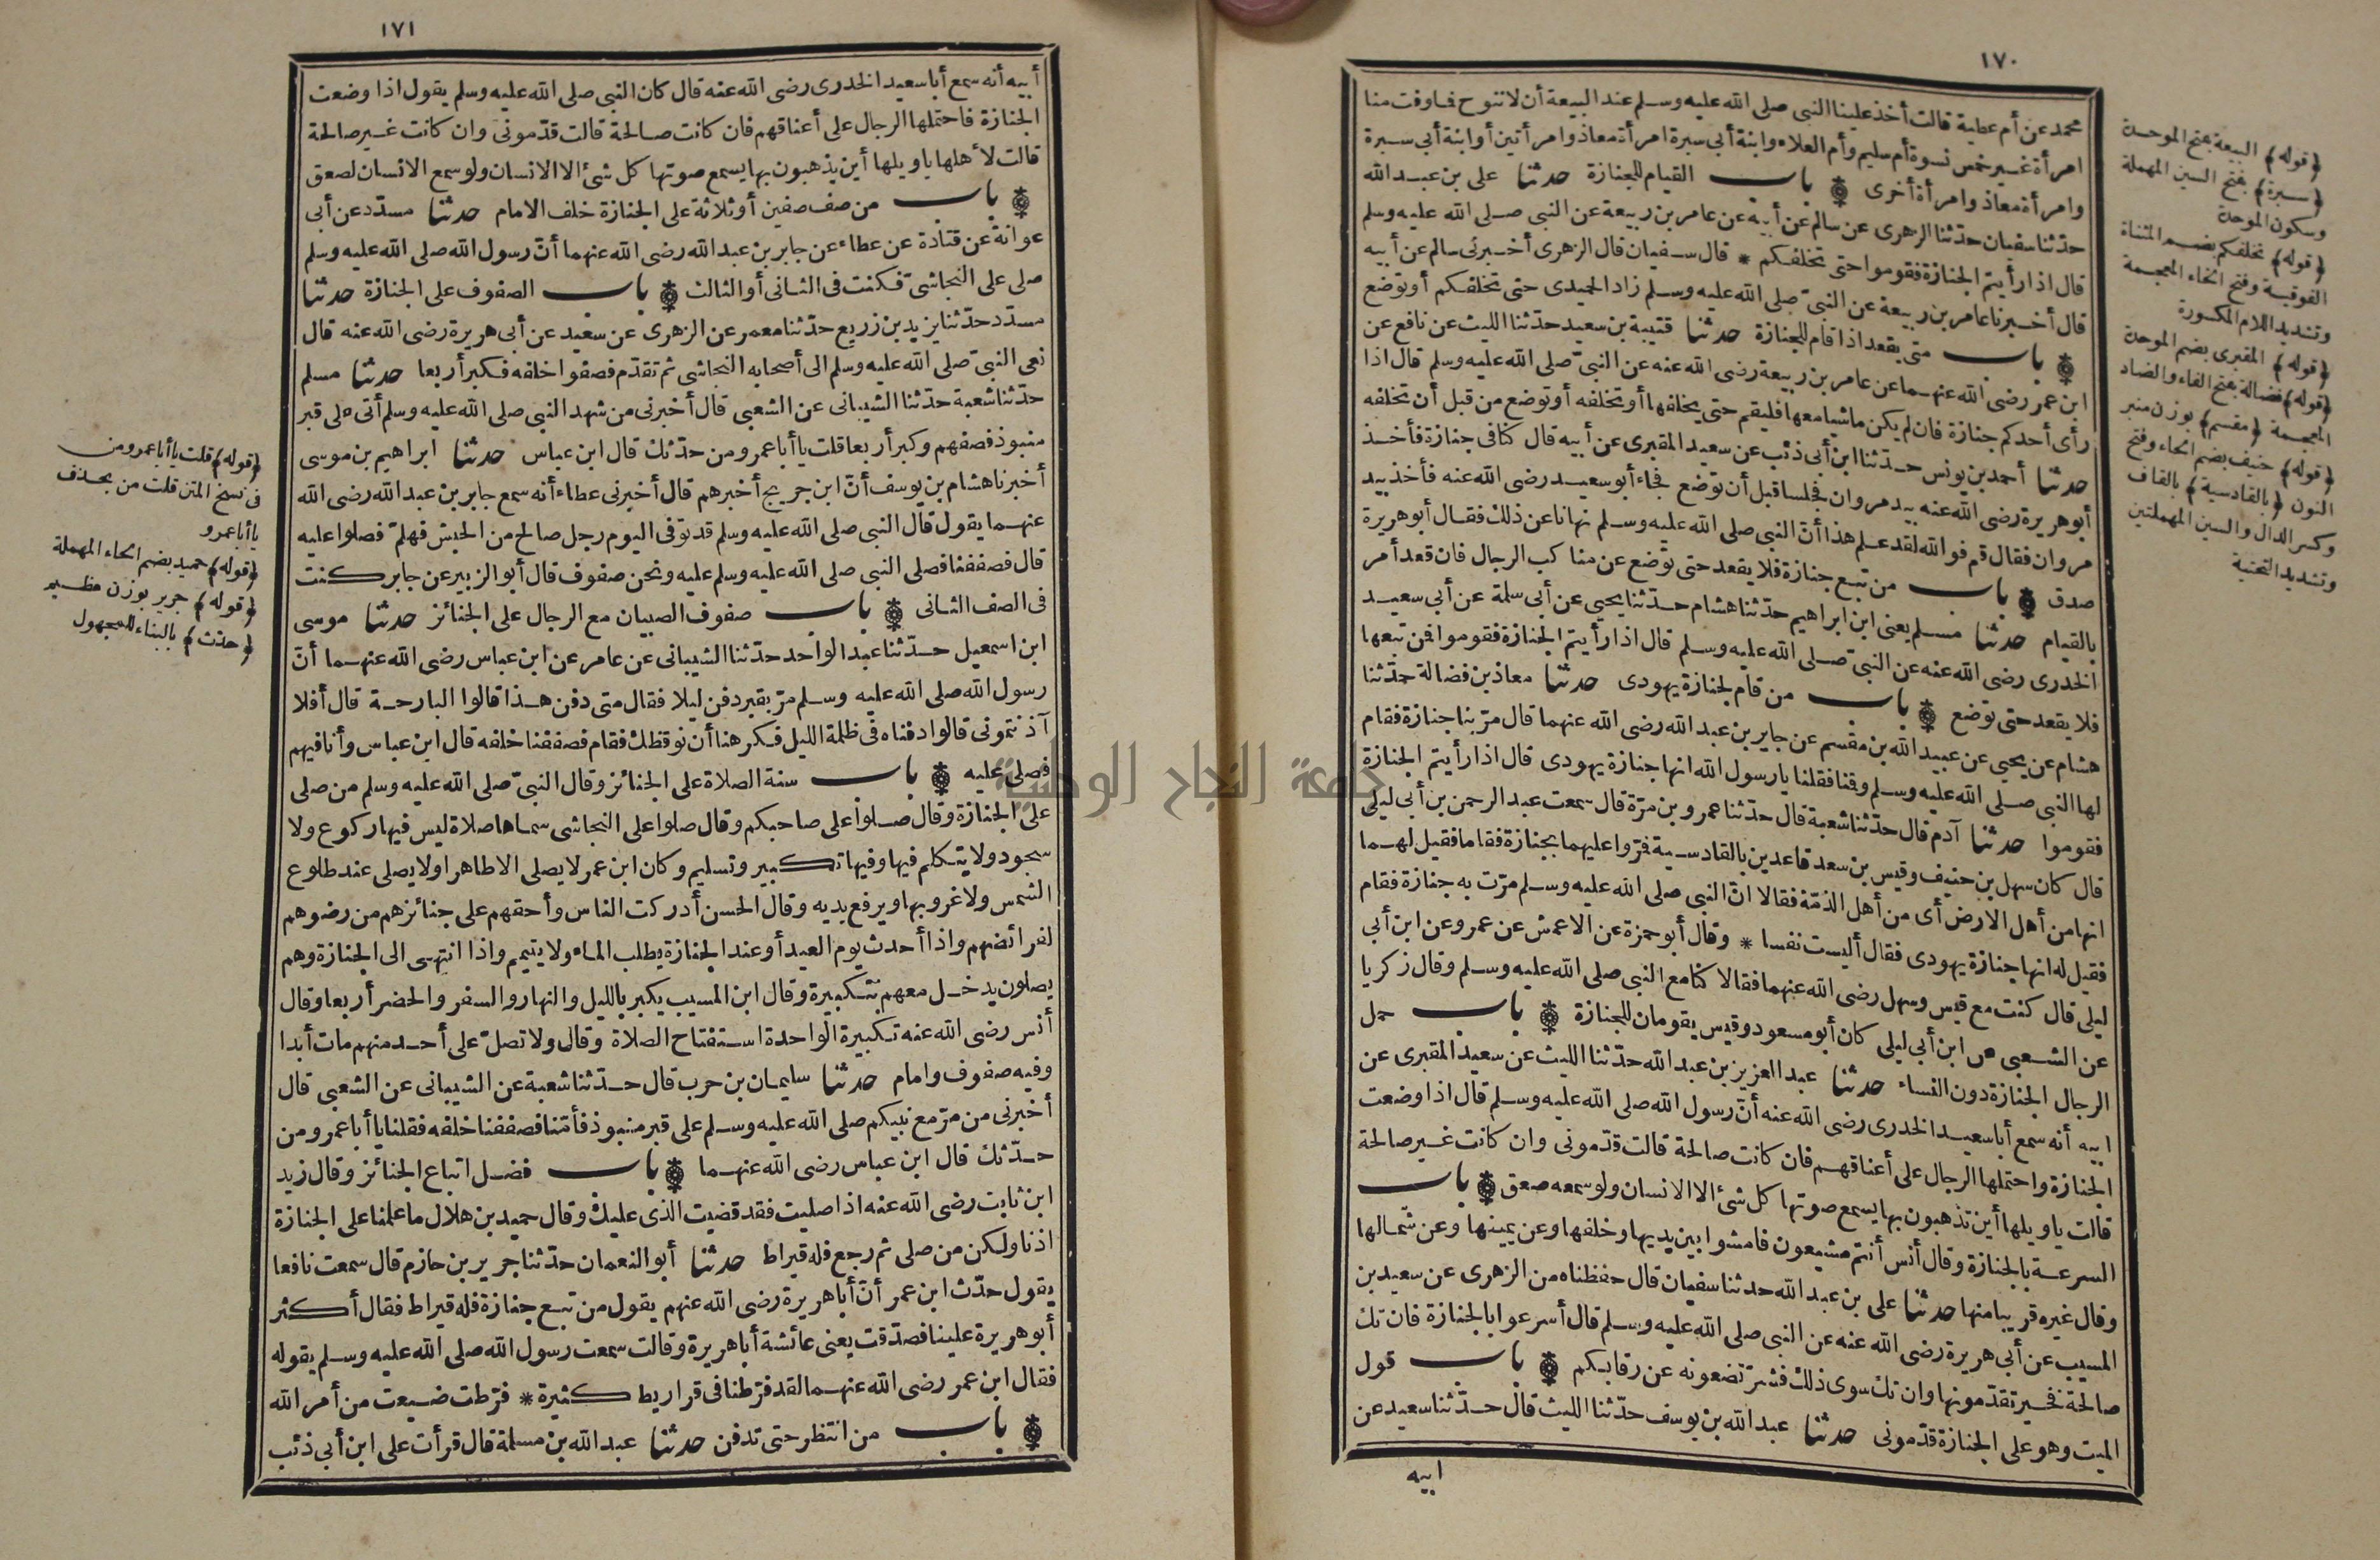 ١٧٠
محمد عن أم عطية قالت أخذ علينا النبي صلى الله عليه وسلم عند البيعة أن لا ننوح فما وفت منا
امرأة غير خمس نسوة أم سليم وأم العلاء وابنة أبي سبرة امرأة معاذ وامرأتين أو ابنة أبي سبرة
وامرأة معاذ وامرأة أخرى باب القيام للجنازة حدثنا علي بن عبد الله
حدثنا سفيان حدثنا الزهرى عن سالم عن أبيه عن عامر بن ربيعة عن النبي صلى الله عليه وسلم
قال اذا رأيتم الجنازة فقوموا حتى تخلفكم * قال سفيان قال الزهرى أخبرنى سالم عن أبيه
قال أخبرنا عامر بن ربيعة عن النبيّ صلى الله عليه وسلم زاد الحميدى حتى تخلفكم أو توضع
باب متى يقعد اذا قام للجنازة حدثنا قتيبة بن سعيد حدّثنا الليث عن نافع عن
ابن عمر رضى الله عنهما عن عامر بن ربيعة رضى الله عنه عن النبيّ صلى الله عليه وسلم قال اذا
رأى أحدكم جنازة فان لم يكن ماشيا معها فليقم حتى يخلفها أو تخلفه أو توضع من قبل أن تخلفه
حدثنا أحمد بن يونس حدّثنا ابن أبى ذئب عن سعيد المقبرى عن أبيه قال كنا فى جنازة فأخذ
أبو هريرة رضى الله عنه بيد مروان فجلسا قبل أن توضع فجاء أبو سعيد رضى الله عنه فأخذ بيد
مروان فقال قم فوالله لقد علم هذا أنّ النبى صلى الله عليه وسلم نهانا عن ذلك فقال أبو هريرة
صدق باب من تبع جنازة فلا يقعد حتى توضع عن مناكب الرجال فان قعد أمر
بالقيام حدثنا مسلم يعنى ابن ابراهيم حدّثنا هشام حدّثنا يحيى عن أبى سلمة عن أبى سعيد
الخدرى رضى الله عنه عن النبىّ صلى الله عليه وسلم قال اذا رأيتم الجنازة فقوموا فمن تبعها
فلا يقعد حتى توضع باب من قام لجنازة يهودى حدثنا معاذ بن فضالة حدّثنا
هشام عن يحيى عن عبيد الله بن مقسم عن جابر بن عبد الله رضى الله عنهما قال مرّ بنا جنازة فقام
لها النبى صلى الله عليه وسلم وقمنا فقلنا يا رسول الله انها جنازة يهودى قال اذا رأيتم الجنازة
فقوموا حدثنا آدم قال حدّثنا شعبة قال حدّثنا عمرو بن مرّة قال سمعت عبد الرحمن بن أبى ليلى
قال كان سهل بن حنيف وقيس بن سعد قاعدين بالقادسية فمرّوا عليهما بجنازة فقاما فقيل لهما
انها من أهل الارض أى من أهل الذمّة فقالا انّ النبى صلى الله عليه وسلم مرّت به جنازة فقام
فقيل له انها جنازة يهودى فقال أليست نفسا * وقال أبو حمزة عن الاعمش عن عمرو عن ابن أبى
ليلى قال كنت مع قيس وسهل رضى الله عنهما فقالا كنا مع النبى صلى الله عليه وسلم وقال زكريا
عن الشعبى عن ابن أبى ليلى كان أبو مسعود وقيس يقومان للجنازة باب حمل
الرجال الجنازة دون النساء حدثنا عبد العزيز بن عبد الله حدّثنا الليث عن سعيد المقبرى عن
ابيه أنه سمع أبا سعيد الخدرى رضى الله عنه أنّ رسول الله صلى الله عليه وسلم قال اذا وضعت
الجنازة واحتملها الرجال على أعناقهم فان كانت صالحة قالت قدّمونى وان كانت غير صالحة
قالت ياويلها أين تذهبون بها يسمع صوتها كل شئ الا الانسان ولو سمعه صعق باب
السرعة بالجنازة وقال أنس أنتم مشيعون فامشوا بين يديها وخلفها وعن يمينها وعن شمالها
وقال غيره قريبا منها حدثنا على بن عبد الله حدثنا سفيان قال حفظناه من الزهرى عن سعيد بن
المسيب عن أبى هريرة رضى الله عنه عن النبى صلى الله عليه وسلم قال أسرعوا بالجنازة فان تك
صالحة فخير تقدّمونها وان تك سوى ذلك فشرّ تضعونه عن رقابكم باب قول
الميت وهو على الجنازة قدّمونى حدثنا عبد الله بن يوسف حدّثنا الليث قال حدّثنا سعيد عن
ابيه
(قوله) البيعة بفتح الموحدة
(سبرة) بفتح السين المهملة
وسكون الموحدة
(قوله) تخلفكم بضم المثناة
الفوقية وفتح الخاء المعجمة
وتشديد اللام المكسورة
(قوله) المقبرى بضم الموحدة
(قوله) فضالة بفتح الفاء والضاد
المعجمة (مقسم) بوزن منبر
(قوله) حنيف بضم الحاء وفتح
النون (بالقادسية) بالقاف
وكسر الدال والسين المهملتين
وتشديد التحتية
١٧١
أبيه أنه سمع أبا سعيد الخدرى رضى الله عنه قال كان النبى صلى الله عليه وسلم يقول اذا وضعت
الجنازة فاحتملها الرجال على أعناقهم فان كانت صالحة قالت قدّمونى وان كانت غير صالحة
قالت لأهلها ياويلها أين يذهبون بها يسمع صوتها كل شئ الا الانسان ولو سمع الانسان لصعق
باب من صف صفين أو ثلاثة على الجنازة خلف الامام حدثنا مسدّد عن أبى
عوانة عن قتادة عن عطاء عن جابر بن عبد الله رضى الله عنهما أنّ رسول الله صلى الله عليه وسلم
صلى على النجاشىّ فكنت فى الثانى أو الثالث باب الصفوف على الجنازة حدثنا
مسدّد حدّثنا يزيد بن زريع حدّثنا معمر عن الزهرى عن سعيد عن أبى هريرة رضى الله عنه قال
نعى النبىّ صلى الله عليه وسلم الى أصحابه النجاشى ثم تقدّم فصفوا خلفه فكبر أربعا حدثنا مسلم
حدّثنا شعبة حدّثنا الشيبانى عن الشعبى قال أخبرنى من شهد النبى صلى الله عليه وسلم أتى على قبر
منبوذ فصفهم وكبر أربعا قلت يا أبا عمرو ومن حدّثك قال ابن عباس حدثنا ابراهيم بن موسى
أخبرنا هشام بن يوسف أنّ ابن جريج أخبرهم قال أخبرنى عطاء أنه سمع جابر بن عبد الله رضى الله
عنهما يقول قال النبى صلى الله عليه وسلم قد توفى اليوم رجل صالح من الحبش فهلمّ فصلوا عليه
قال فصففنا فصلى النبى صلى الله عليه وسلم عليه ونحن صفوف قال أبو الزبير عن جابر كنت
فى الصف الثانى باب صفوف الصبيان مع الرجال على الجنائز حدثنا موسى
ابن اسمعيل حدّثنا عبد الواحد حدّثنا الشيبانى عن عامر عن ابن عباس رضى الله عنهما أنّ
رسول الله صلى الله عليه وسلم مرّ بقبر دفن ليلا فقال متى دفن هذا قالوا البارحة قال أفلا
آذنتمونى قالوا دفناه فى ظلمة الليل فكرهنا أن نوقظك فقام فصففنا خلفه قال ابن عباس وأنا فيهم
فصلى عليه باب سنة الصلاة على الجنائز وقال النبىّ صلى الله عليه وسلم من صلى
على الجنازة وقال صلوا على صاحبكم وقال صلوا على النجاشى سماها صلاة ليس فيها ركوع ولا
سجود ولا يتكلم فيها وفيها تكبير وتسليم وكان ابن عمر لا يصلى الا طاهرا ولا يصلى عند طلوع
الشمس ولا غروبها ويرفع يديه وقال الحسن أدركت الناس وأحقهم على جنائزهم من رضوهم
لفرائضهم واذا أحدث يوم العيد أو عند الجنازة يطلب الماء ولا يتيمم واذا انتهى الى الجنازة وهم
يصلون يدخل معهم بتكبيرة وقال ابن المسيب يكبر بالليل والنهار والسفر والحضر أربعا وقال
أنس رضى الله عنه تكبيرة الواحدة استفتاح الصلاة وقال ولا تصلّ على أحد منهم مات أبدا
وفيه صفوف وامام حدثنا سليمان بن حرب قال حدّثنا شعبة عن الشيبانى عن الشعبى قال
أخبرنى من مرّ مع نبيكم صلى الله عليه وسلم على قبر منبوذ فأمّنا فصففنا خلفه فقلنا يا أبا عمرو ومن
حدّثك قال ابن عباس رضى الله عنهما باب فضل اتباع الجنائز وقال زيد
ابن ثابت رضى الله عنه اذا صليت فقد قضيت الذى عليك وقال حميد بن هلال ما علمنا على الجنازة
اذنا ولكن من صلى ثم رجع فله قيراط حدثنا أبو النعمان حدّثنا جرير بن حازم قال سمعت نافعا
يقول حدّث ابن عمر أنّ أبا هريرة رضى الله عنهم يقول من تبع جنازة فله قيراط فقال أكثر
أبو هريرة علينا فصدّقت يعنى عائشة أبا هريرة وقالت سمعت رسول الله صلى الله عليه وسلم يقوله
فقال ابن عمر رضى الله عنهما لقد فرّطنا فى قراريط كثيرة * فرّطت ضيعت من أمر الله
باب من انتظر حتى تدفن حدثنا عبد الله بن مسلمة قال قرأت على ابن أبى ذئب
(قوله) قلت يا أبا عمرو ومن
فى نسخ المتن قلت من بحذف
يا أبا عمرو
(قوله) حميد بضم الحاء المهملة
(قوله) جرير بوزن عظيم
(حدث) بالبناء للمجهول
جامعة النجاح الوطنية